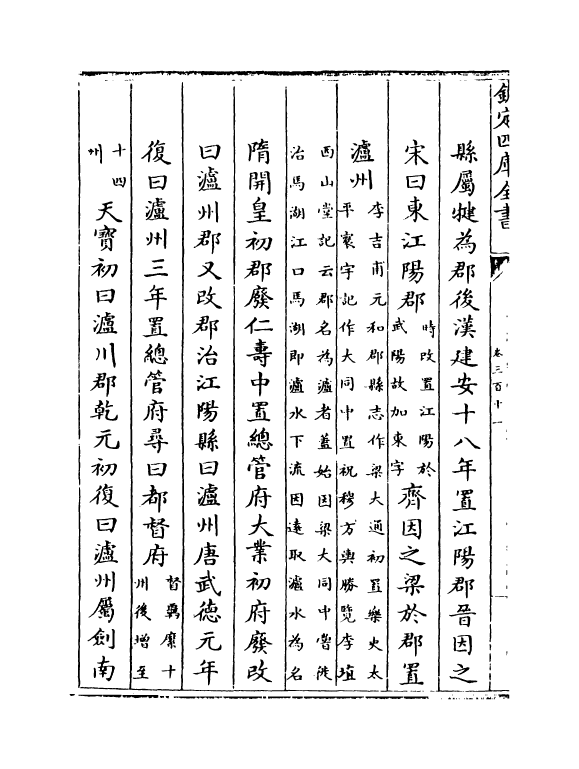 欽定四庫全書
卷三百十一
縣屬犍為郡後漢建安十八年置江陽郡晉因之
宋曰東江陽郡時改置江陽於武陽故加東字齊因之梁於郡置
瀘州李吉甫元和郡縣志作梁大通初置樂史太平寰宇記作大同中置祝穆方輿勝覽李埴
西山堂記云郡名為瀘者蓋始因梁大同中嘗徙治馬湖江口馬湖即瀘水下流因遠取瀘水為名
隋開皇初郡廢仁壽中置總管府大業初府廢改
曰瀘州郡又改郡治江陽縣曰瀘州唐武德元年
復曰瀘州三年置總管府尋曰都督府督羈縻十州後增至
十四州天寶初曰瀘川郡乾元初復曰瀘州屬劍南